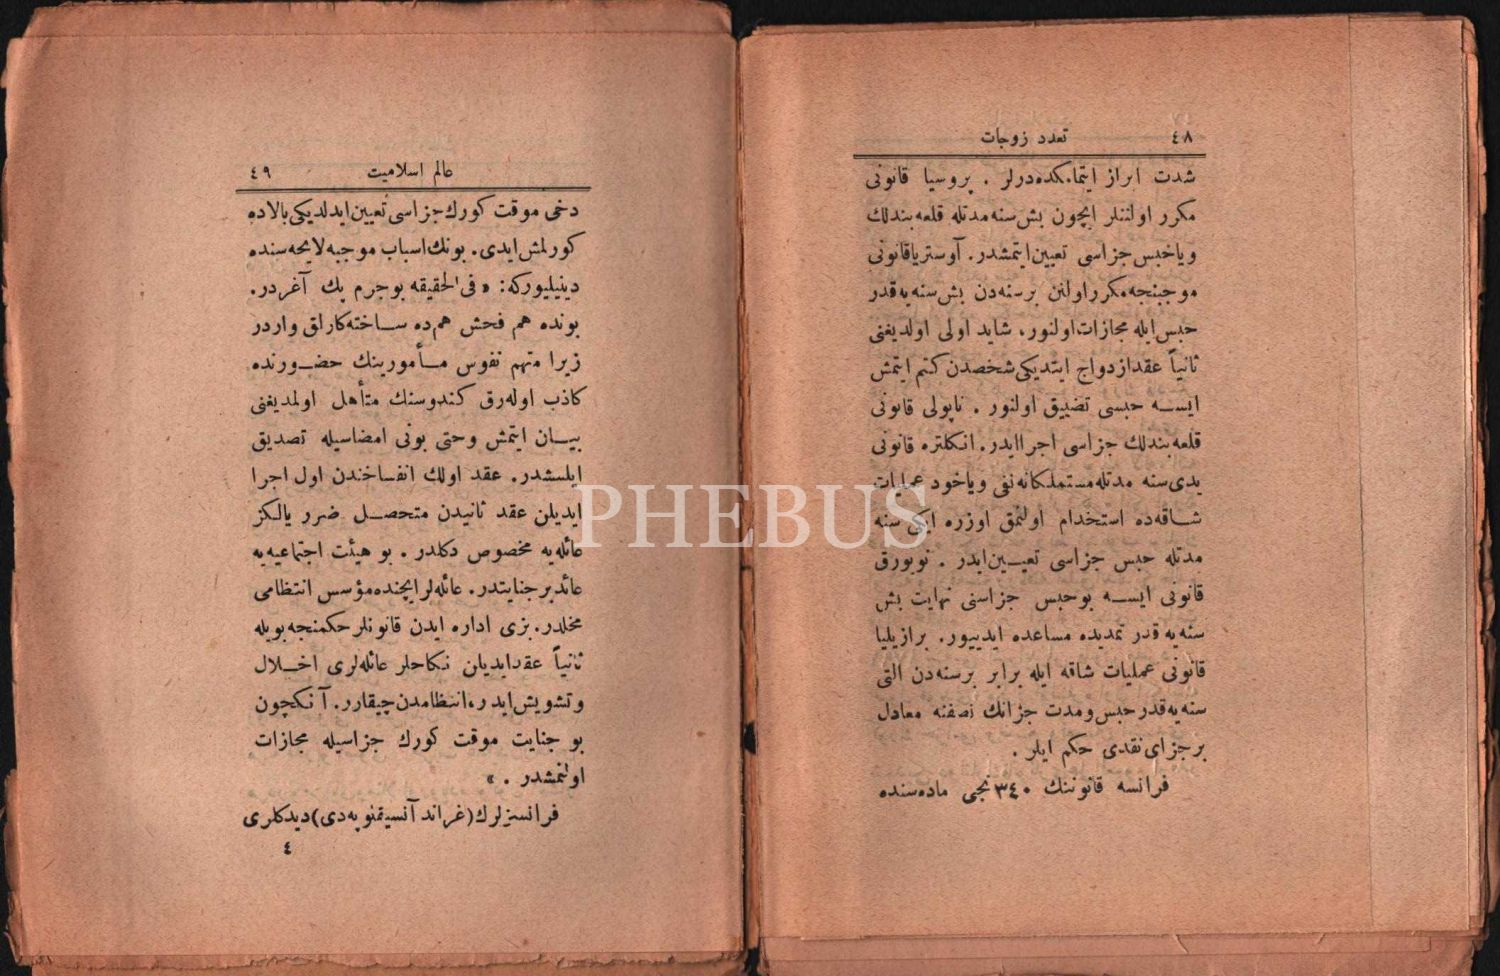 ٤٨ تعدد زوجات
شدت ابراز ایتمکده‌درلر . پروسیا قانونی
مکرر اولنلر ایچون بش سنه مدتله قلعه‌بندلك
ویا حبس جزاسی تعیین ایتمشدر. آوستریا قانونی
موجبنجه مکرر اولنن برسنه‌دن بش سنه‌یه قدر
حبس ایله مجازات اولنور، شاید اولی اولدیغنی
ثانیاً عقد ازدواج ایتدیکی شخصدن کتم ایتمش
ایسه حبسی تضییق اولنور . ناپولی قانونی
قلعه‌بندلك جزاسی اجرا ایدر. انکلتره قانونی
یدی سنه مدتله مستملکاته نفی ویاخود عملیات
شاقه‌ده استخدام اولنمق اوزره ایکی سنه
مدتله حبس جزاسی تعیین ایدر . نویورق
قانونی ایسه بو حبس جزاسنی نهایت بش
سنه‌یه قدر تمدیده مساعده ایدییور. برازیلیا
قانونی عملیات شاقه ایله برابر برسنه‌دن التی
سنه‌یه قدر حبس ومدت جزانك نصفنه معادل
برجزای نقدی حکم ایلر .
فرانسه قانوننك ٣٤٠ نجی ماده‌سنده
عالم اسلامیت ٤٩
دخی موقت کورك جزاسی تعیین ایدلدیکی بالاده
کورلمش ایدی. بونك اسباب موجبه لایحه‌سنده
دینیلیورکه: « فی الحقیقه بو جرم پك آغردر.
بونده هم فحش هم ده ساخته‌کارلق واردر
زیرا متهم نفوس مأمورینك حضورنده
کاذب اوله‌رق کندوسنك متأهل اولمدیغنی
بیان ایتمش وحتی بونی امضاسیله تصدیق
ایلمشدر. عقد اولك انفساخندن اول اجرا
ایدیلن عقد ثانیدن متحصل ضرر یالکز
عائله‌یه مخصوص دکلدر . بو هیئت اجتماعیه‌یه
عائد بر جنایتدر. عائله‌لر ایچنده مؤسس انتظامی
مخلدر. بزی اداره ایدن قانونلر حکمنجه بویله
ثانیاً عقد ایدیلن نکاحلر عائله‌لری اخلال
وتشویش ایدر، انتظامدن چیقارر. آنکچون
بو جنایت موقت کورك جزاسیله مجازات
اولنمشدر . »
فرانسزلرك (غراند آنسیقلوپه‌دی) دیدکلری
٤
PHEBUS